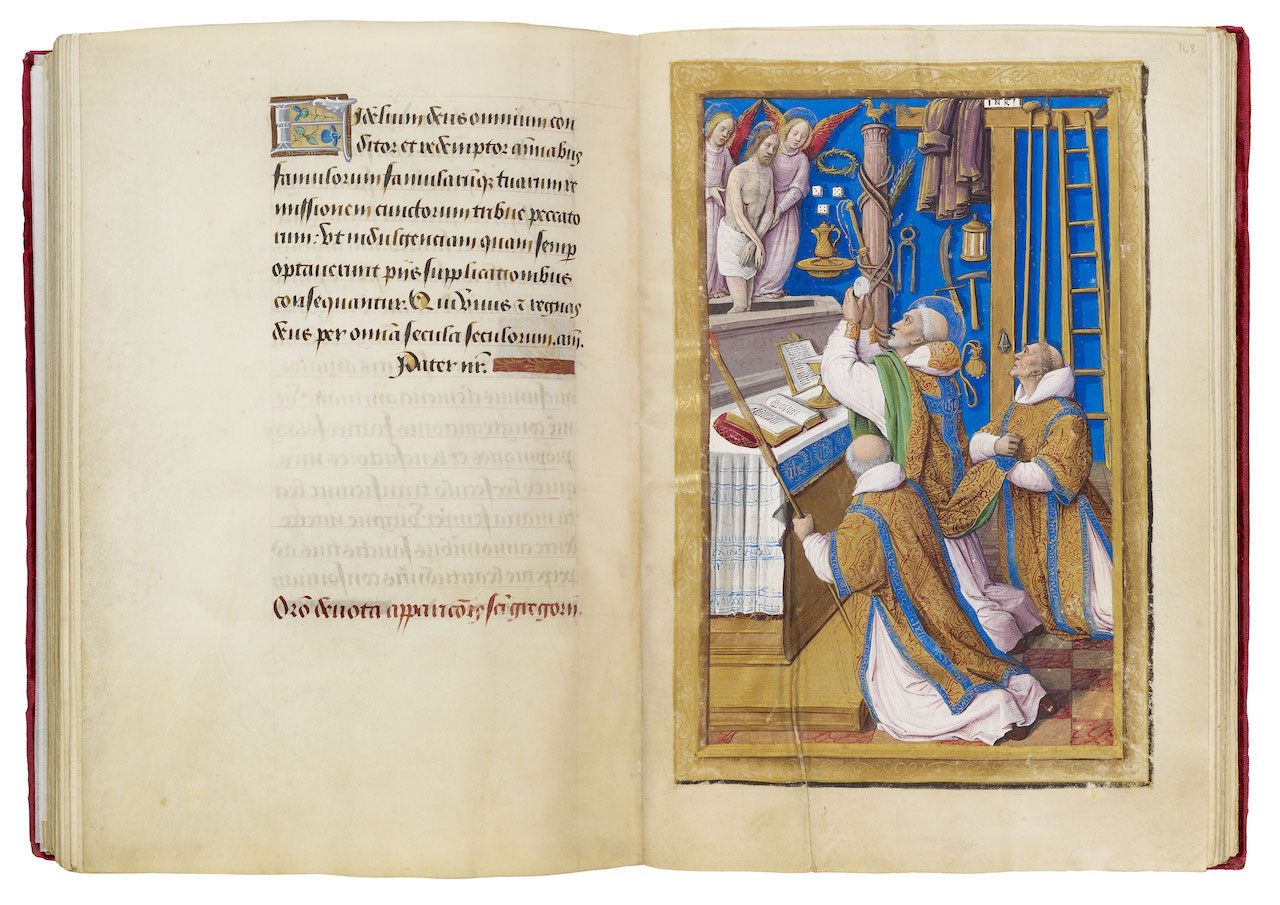 Fidelium deus omnium con
ditor et redemptor anīabus
famulorum famularūq; tuarum re
missionem cunctorum tribue peccato
rum: Vt indulgenciam quam semp
optauerunt pijs supplicationibus
consequantur. Qui viuis ⁊ regnas
deus per omīa secula seculorum. am̄.
Pater nr̄.
Orō deuota apparicōis sc̄i gregorij.
168
INRI
ihs